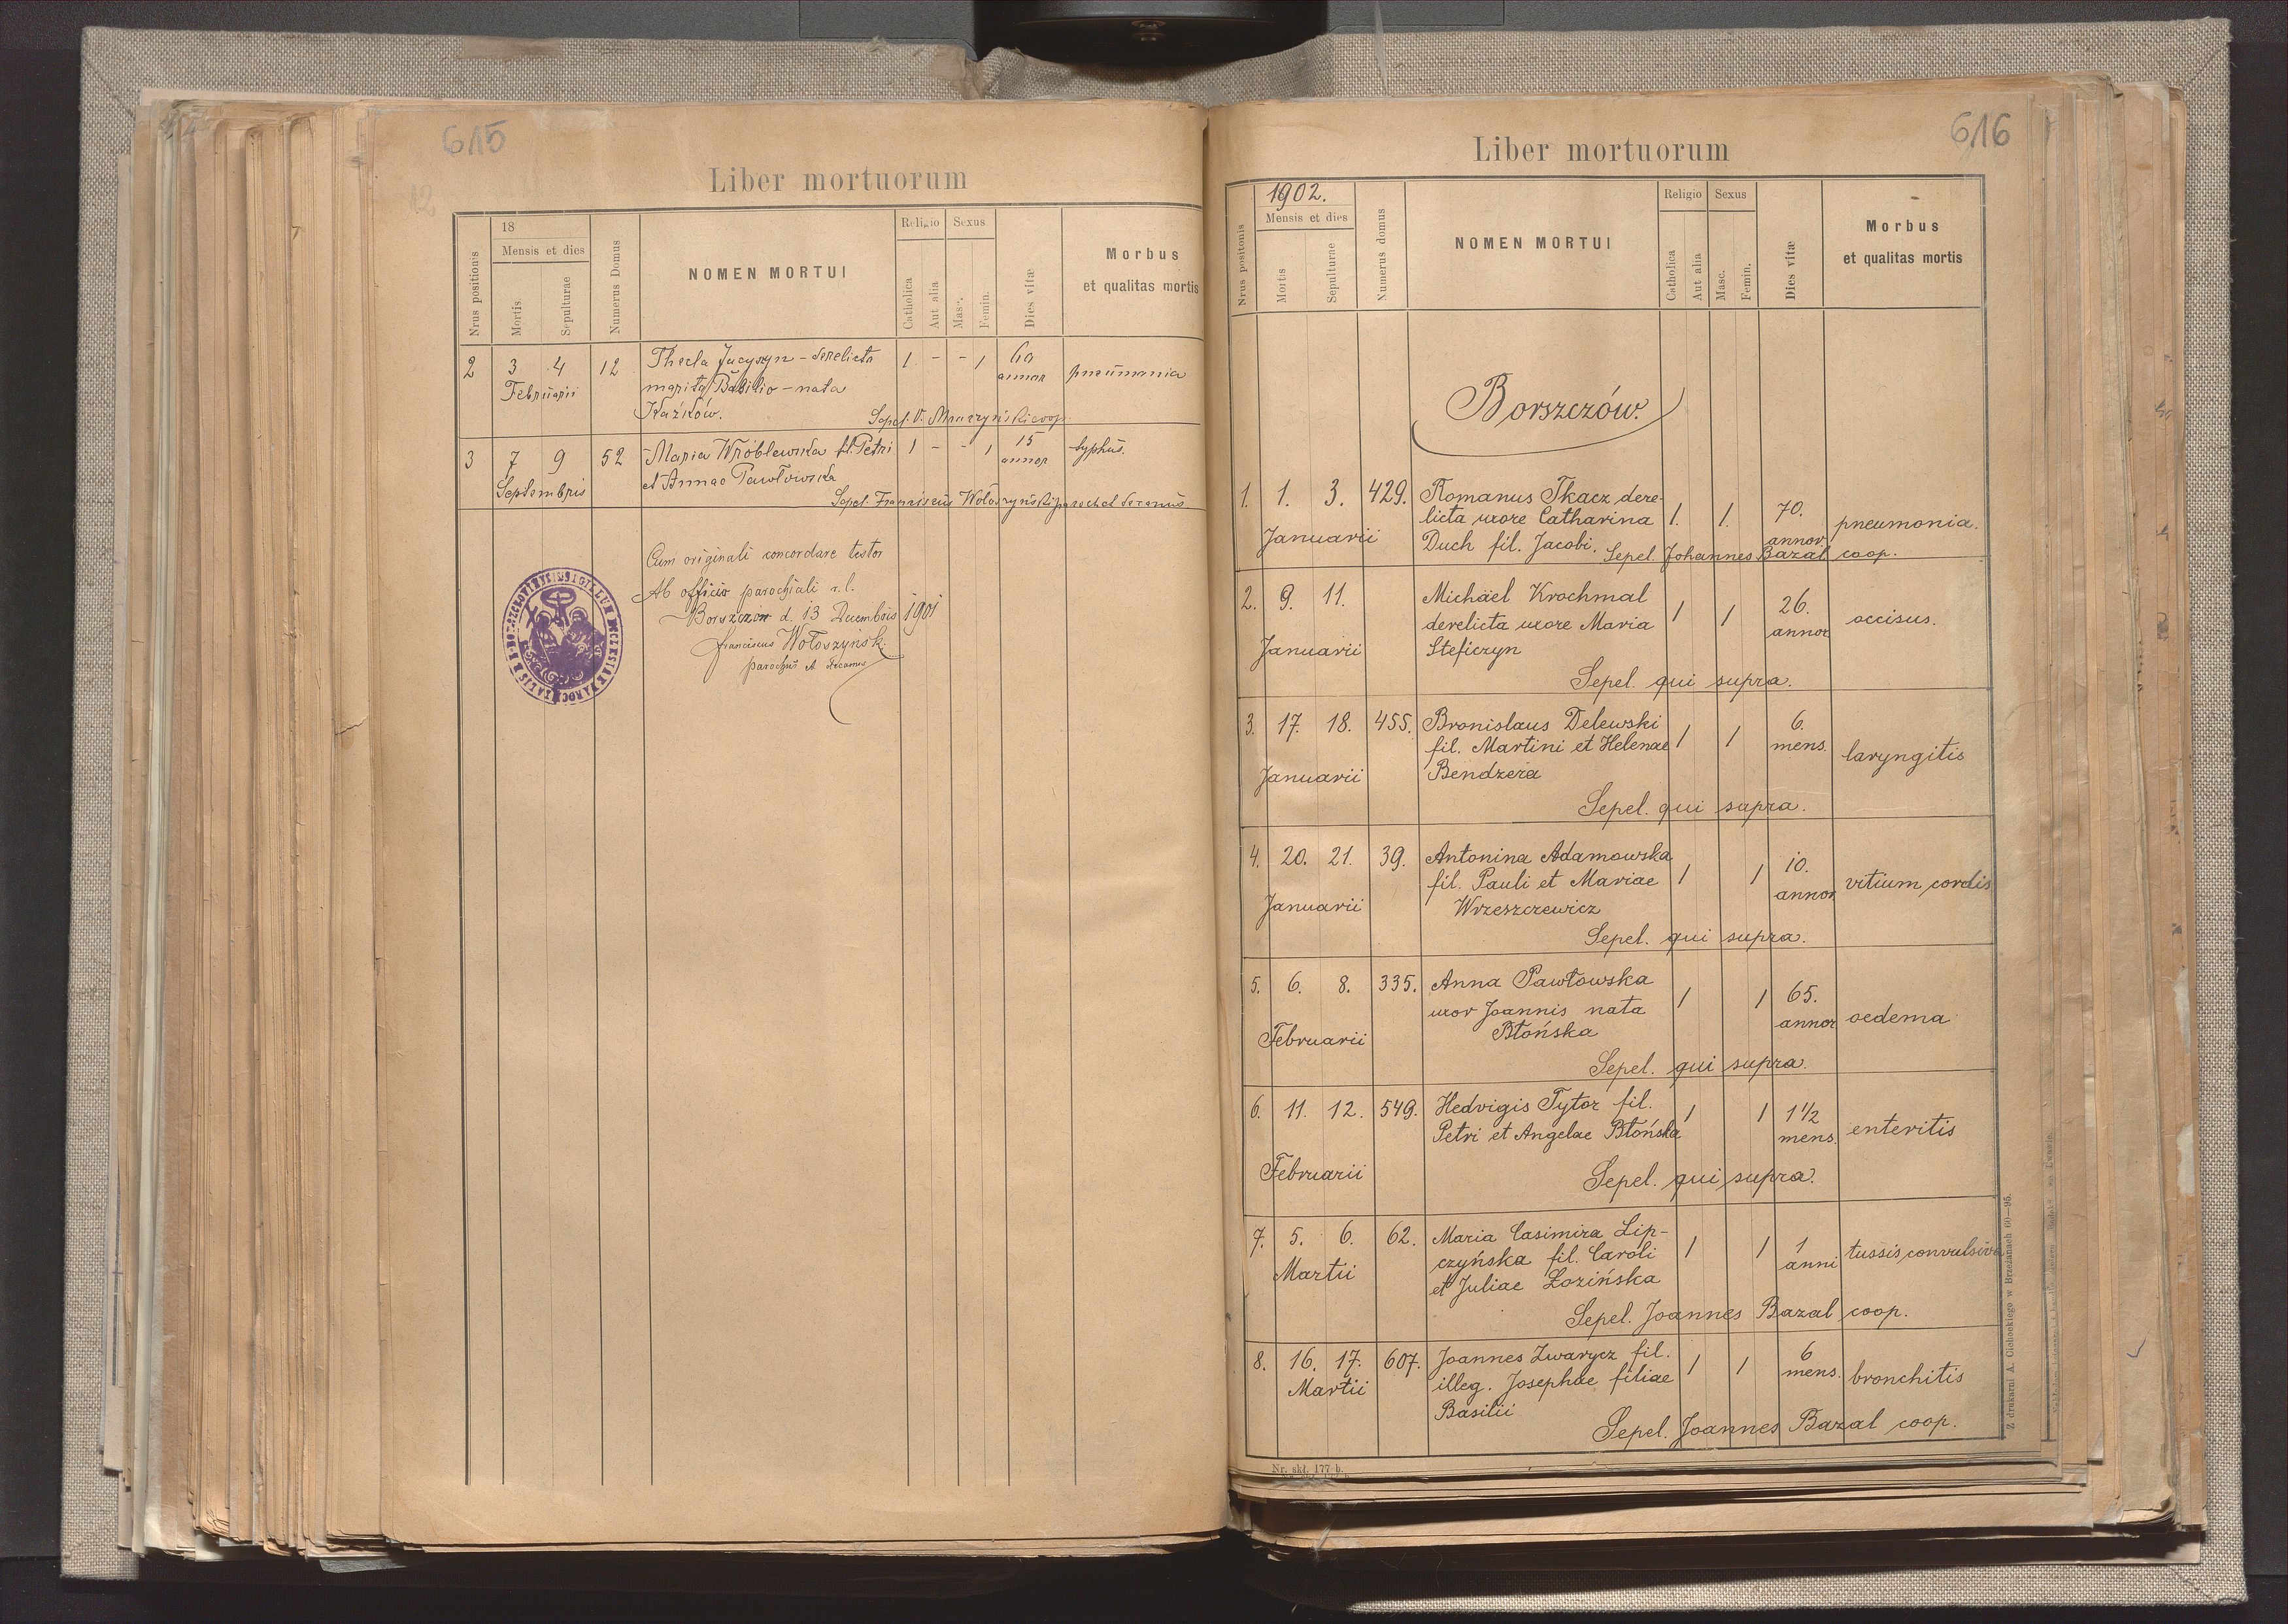 615
Liber mortuorum
18
Mensis et dies
Nrus positionis
Mortis
Sepulturae
Numerus Domus
NOMEN MORTUI
Religio
Sexus
Catholica
Aut alia
Masc.
Femin.
Dies vitæ
Morbus
et qualitas mortis
2 3 4 12 Thecla Jacyszyn - derelicta 1 - - 1 60
Februarii marito Basilio - nata annor pneumonia
Kaźków.
3 7 9 52 Maria Wróblewska fil. Petri 1 - - 1 15 typhus.
Septembris et Annae Pawłowska annor
Sepel. Franciscus Wołoszyński paroch et decanus
Cum originali concordare testor
Ab officio parochiali r. l.
Borszczow d. 13 Decembris 1901
Franciscus Wołoszyński
parochus et decanus
616
Liber mortuorum
1902.
Mensis et dies
Nrus positonis
Mortis
Sepulturae
Numerus domus
NOMEN MORTUI
Religio
Sexus
Catholica
Aut alia
Masc.
Femin.
Dies vitæ
Morbus
et qualitas mortis
Borszczów.
1. 1. 3. 429. Romanus Tkacz dere-
licta uxore Catharina 1. 1. 70. pneumonia.
Januarii Duch fil. Jacobi. annor.
Sepel. Johannes Bazal coop.
2. 9. 11. Michael Krochmal
derelicta uxore Maria 1 1 26. annor occisus.
Januarii Steficzyn
Sepel. qui supra.
3. 17. 18. 455. Bronislaus Delewski 6.
fil. Martini et Helenae 1 1 mens. laryngitis
Januarii Bendzera
Sepel. qui supra.
4. 20. 21. 39. Antonina Adamowska
fil. Pauli et Mariae 1 1 10. annor vitium cordis
Januarii Wrzeszczewicz
Sepel. qui supra.
5. 6. 8. 335. Anna Pawłowska
uxor Joannis nata 1 1 65. annor oedema
Februarii Błońska
Sepel. qui supra.
6. 11. 12. 549. Hedvigis Tytor fil. 1 1 1½
Petri et Angelae Błońska mens. enteritis
Februarii
Sepel. qui supra.
7. 5. 6. 62. Maria Casimira Lip-
Martii czyńska fil. Caroli 1 1 1 anni tussis convulsiva
et Juliae Łozińska
Sepel. Joannes Bazal coop.
8. 16. 17. 607. Joannes Zwarycz fil. 6
Martii illeg. Josephae filiae 1 1 mens. bronchitis
Basilii
Sepel. Joannes Bazal coop.
Nr. skł. 177 b.
Z drukarni A. Cichockiego w Brzeżanach 60—95.